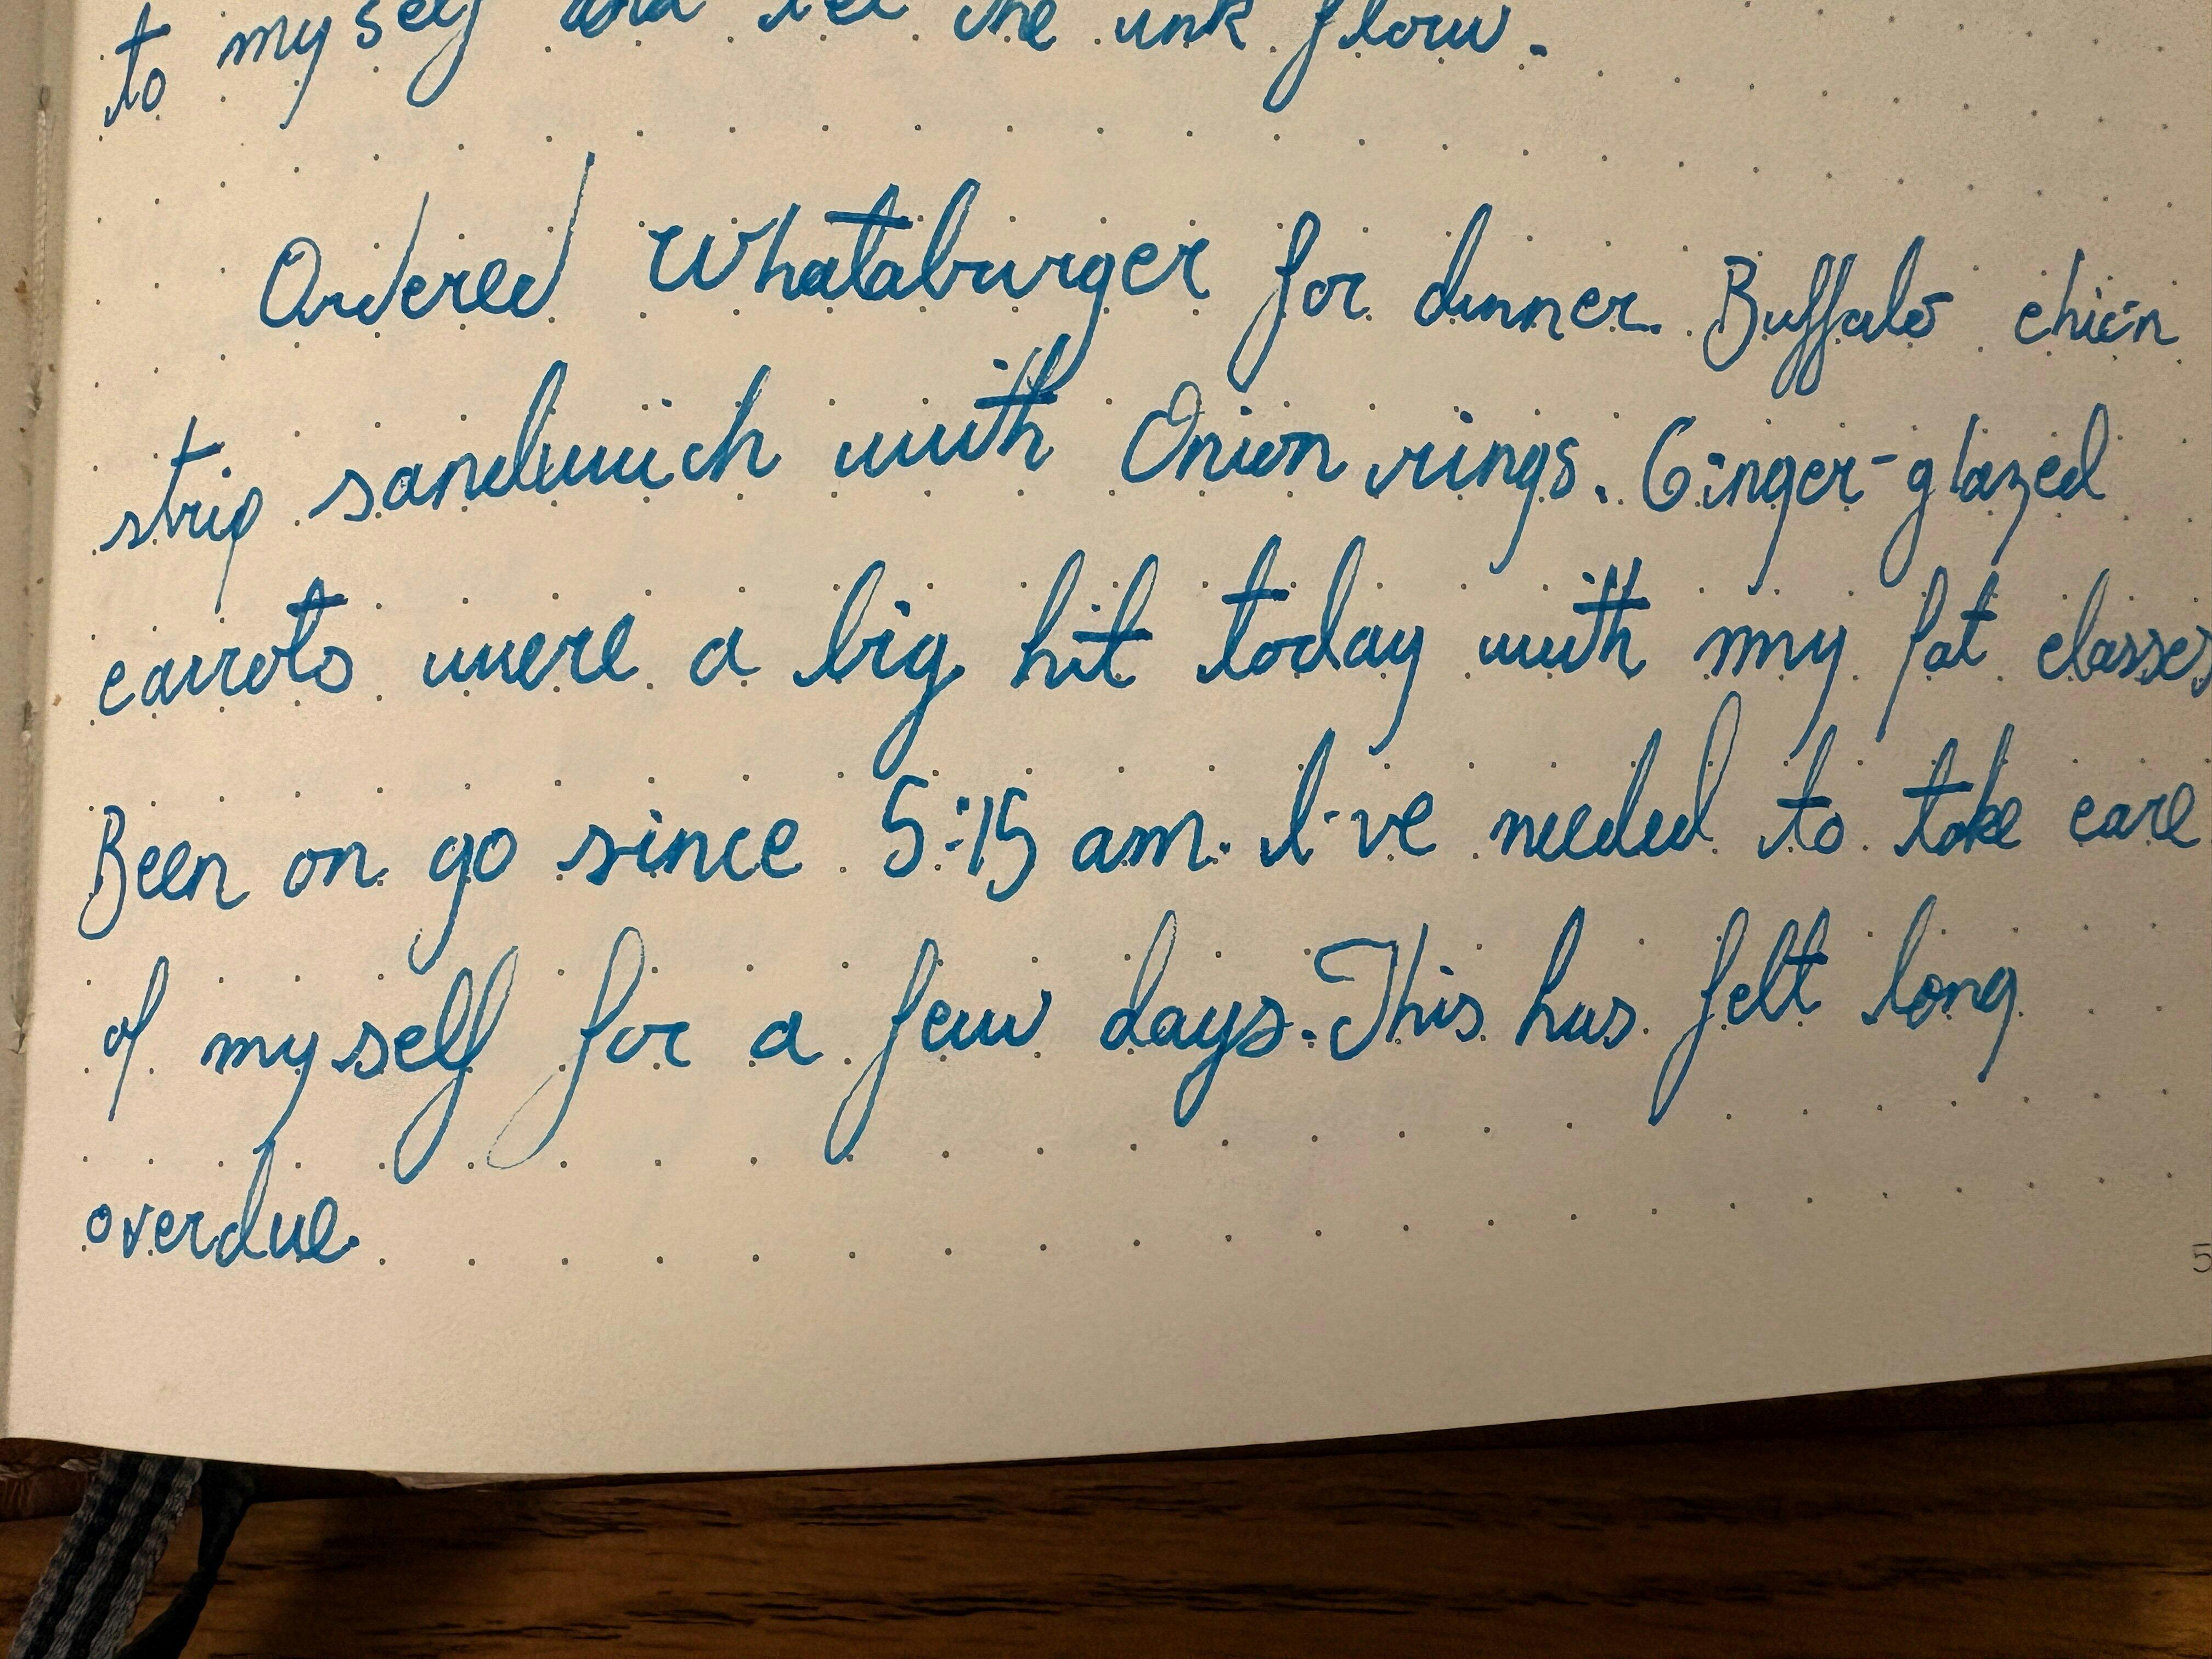 to myself and let the ink flow.
Ordered Whataburger for dinner. Buffalo chien
strip sandwich with Onion rings. Ginger-glazed
carrots were a big hit today with my fat classes
Been on go since 5:15 am. I've needed to take care
of myself for a few days. This has felt long
overdue.
5